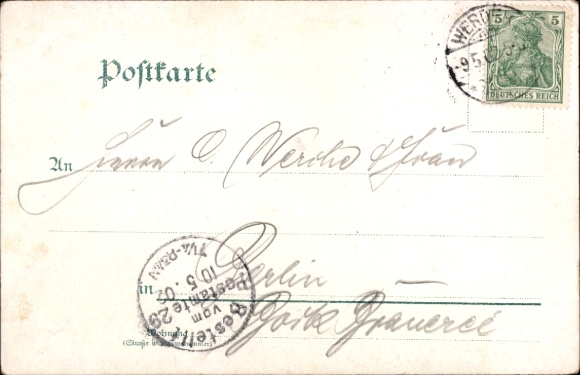 5 5
WERDE
9.5.0
DEUTSCHES REICH
Postkarte
An Herrn O. Werche & Frau
in Berlin
Bock Brauerei
Wohnung
(Straße und Hausnummer)
Bestellt
vom
Postamte 29
10.5.02
7¼-8½N